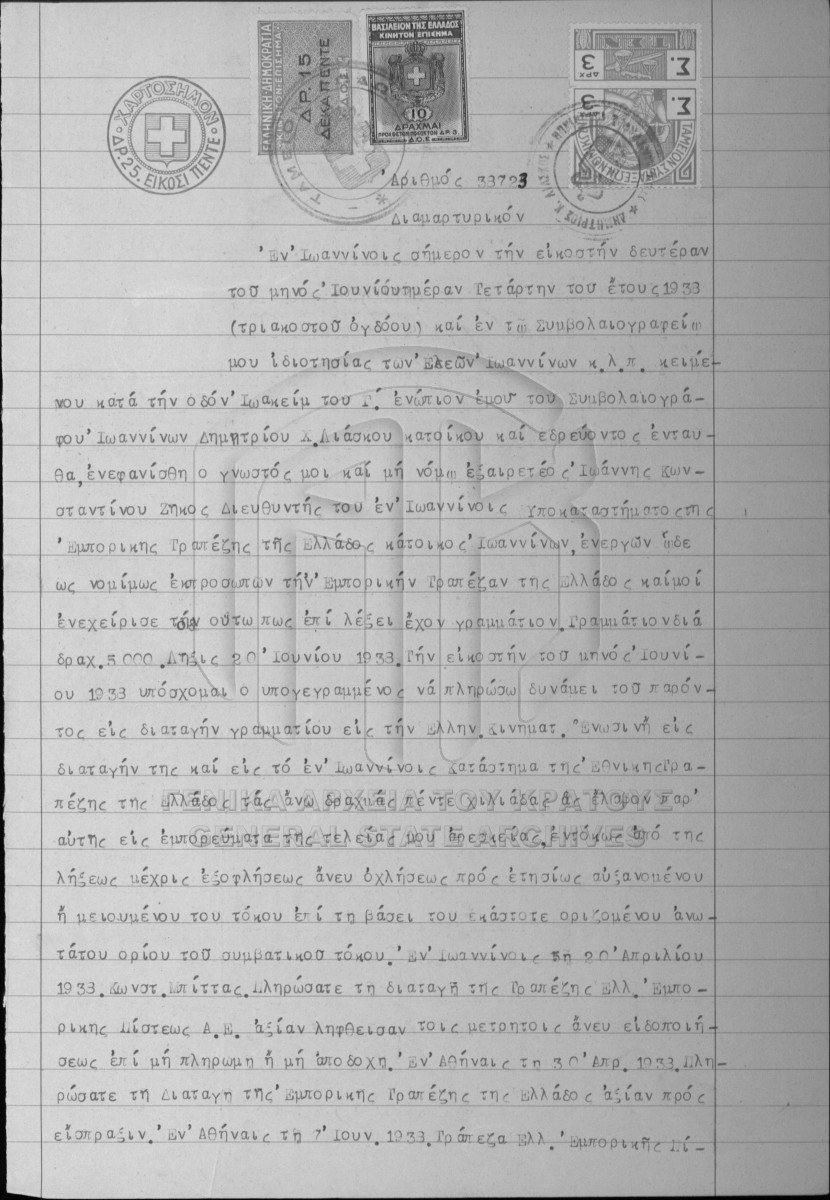 ΧΑΡΤΟΣΗΜΟΝ
ΔΡ.25. ΕΙΚΟΣΙ ΠΕΝΤΕ
ΕΛΛΗΝΙΚΗ ΔΗΜΟΚΡΑΤΙΑ
ΔΡ.15
ΔΕΚΑΠΕΝΤΕ
ΒΑΣΙΛΕΙΟΝ ΤΗΣ ΕΛΛΑΔΟΣ
ΚΙΝΗΤΟΝ ΕΠΙΣΗΜΑ
10
ΔΡΑΧΜΑΙ
Δ.Ο.Ε
Σ.
ΔΡΧ 3
Σ.
3
ΤΑΜΕΙΟΝ ΣΥΝΤΑΞΕΩΝ ΝΟΜΙΚΩΝ
Ἀριθμός 33723
Διαμαρτυρικόν
Ἐν Ἰωαννίνοις σήμερον τήν εἰκοστήν δευτέραν
τοῦ μηνός Ἰουνίου ἡμέραν Τετάρτην τοῦ ἔτους 1938
(τριακοστοῦ ὀγδόου) καί ἐν τῷ Συμβολαιογραφείῳ
μου ἰδιοτησίας τῶν Ἐλεῶν Ἰωαννίνων κ.λ.π. κειμέ-
νου κατά τήν ὁδόν Ἰωακείμ του Γ΄. ἐνώπιον ἐμοῦ του Συμβολαιογρά-
φου Ἰωαννίνων Δημητρίου Χ.Λιάσκου κατοίκου καί εδρεύοντος ἐνταυ-
θα, ἐνεφανίσθη ο γνωστός μοι καί μή νόμῳ ἐξαιρετέος Ἰωάννης Κων-
σταντίνου Ζηκος Διευθυντής του ἐν Ἰωαννίνοις Υποκαταστήματος της
Ἐμπορικης Τραπέζης τῆς Ελλάδος κάτοικος Ἰωαννίνων, ἐνεργῶν ὧδε
ως νομίμως ἐκπροσωπῶν τήν Ἐμπορικήν Τραπέζαν της Ελλάδος καί μοί
ἐνεχείρισε τό οὕτω πως ἐπί λέξει ἔχον γραμμάτιον. Γραμμάτιον διά
δραχ. 5000. Λῆξις 20 Ἰουνίου 1938. Τήν εἰκοστήν τοῦ μηνός Ἰουνί-
ου 1938 υπόσχομαι ο υπογεγραμμένος νά πληρώσω δυνάμει τοῦ παρόν-
τος εἰς διαταγήν γραμματίου εἰς τήν Ελλην. Κινηματ. Ἕνωσιν ἤ εἰς
διαταγήν της καί εἰς τό ἐν Ἰωαννίνοις Κατάστημα της Ἐθνικης Τρα-
πέζης της Ελλάδος τάς ἄνω δραχμάς πέντε χιλιάδας ἅς ἔλαβον παρ'
αὐτης εἰς ἐμπορεύματα της τελείας μου ἀρεσκείας, ἐντόκως ἀπό της
λήξεως μέχρις ἐξοφλήσεως ἄνευ ὀχλήσεως πρός ἐτησίως αὐξανομένου
ἤ μειουμένου του τόκου ἐπί τη βάσει του εκάστοτε οριζομένου ἀνω-
τάτου ορίου τοῦ συμβατικοῦ τόκου. Ἐν Ἰωαννίνοις τῇ 20 Ἀπριλίου
1938. Κωνστ. Μπίττας. Πληρώσατε τη διαταγῇ τῆς Τραπέζης Ελλ. Ἐμπο-
ρικης Πίστεως Α.Ε. ἀξίαν ληφθεισαν τοις μετρητοις ἄνευ εἰδοποιή-
σεως ἐπί μή πληρωμη ἤ μή ἀποδοχη. Ἐν Ἀθήναις τη 30 Ἀπρ. 1938. Πλη-
ρώσατε τη Διαταγη τῆς Ἐμπορικης Τραπέζης της Ελλάδος ἀξίαν πρός
εἴσπραξιν. Ἐν Ἀθήναις τη 7 Ἰουν. 1938. Τράπεζα Ελλ. Ἐμπορικῆς Πί-
ΓΕΝΙΚΑ ΑΡΧΕΙΑ ΤΟΥ ΚΡΑΤΟΥΣ
GENERAL STATE ARCHIVES